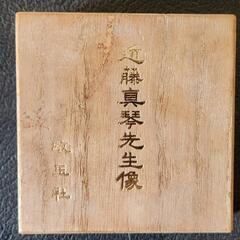 近藤真琴先生像
攻玉社